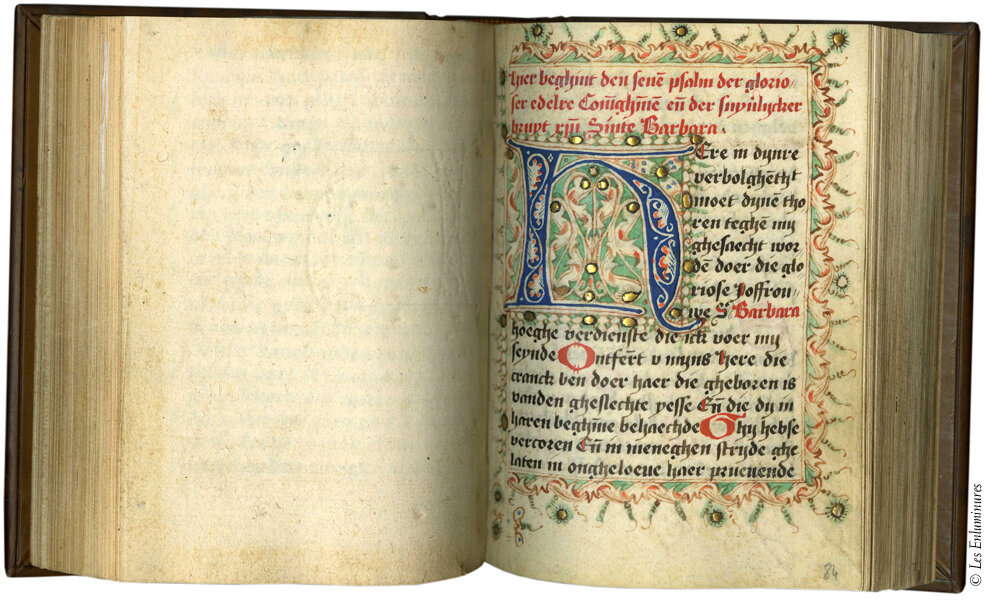 hier beghīnt den seuē psalm der glorio
ser edelre Conīghīne eñ der suyūlycker
bruyt xp̄i Sinte Barbara.
HEre in dynre
verbolghētht
moet dynē tho
ren teghē my
ghesaecht wor
dē doer die glo
riose Joffrou
we S. Barbara
hoeghe verdienste die ick voer my
seynde Ontfert v myns here die
cranck ben doer haer die gheboren is
vanden gheslechte yesse Eñ die du in
haren beghīne behaechde Ghy hebse
vercoren Eñ in meneghen stryde ghe
laten in ongheloeue haer prueuende
84
© Les Enluminures